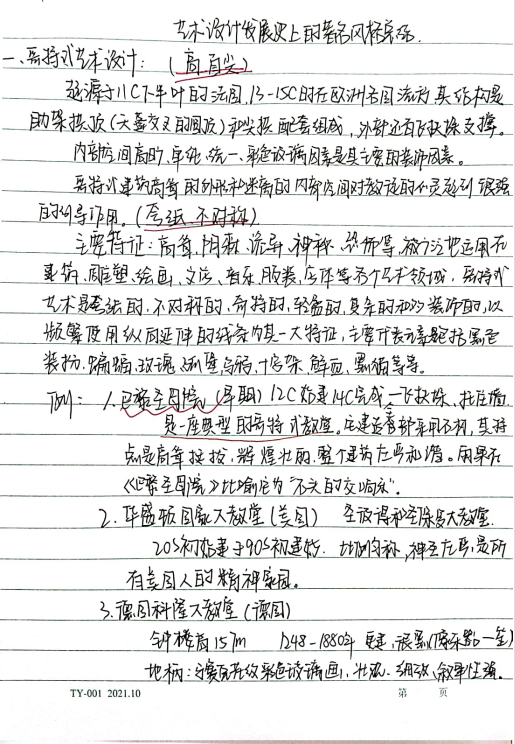 艺术设计发展史上的著名风格案例.
一、哥特式艺术设计：（高直尖）
起源于11C下半叶的法国, 13-15C时在欧洲各国流行 其结构是
助架拱顶（六叠交叉的圆顶）和尖拱配套组成, 外部还有飞扶垛支撑。
内部空间高旷、单纯、统一、彩色玻璃因素是其主要的装饰因素。
哥特式建筑高耸的外形和迷离的内部空间对教徒的心灵起到很强
的作用。（夸张、不对称）
主要特征：高耸、阴森、诡异、神秘、恐怖等, 被广泛地运用在
建筑、雕塑、绘画、文学、音乐、服装、字体等各个艺术领域。哥特式
艺术是夸张的、不对称的、奇特的、轻盈的、复杂的和多装饰的, 以
频繁使用纵向延伸的线条为其一大特征, 主要代表元素包括黑色
装扮、蝙蝠、玫瑰、孤堡、乌鸦、十字架、鲜血、黑猫等等。
例： 1.巴黎圣母院（早期）12C始建14C完成、飞扶垛、
是一座典型的哥特式教堂。 其特
点是高耸挺拔, 辉煌壮丽, 整个建筑庄严和谐。雨果在
《巴黎圣母院》比喻它为“石头的交响乐”。
2. 华盛顿国家大教堂（美国） 圣彼得和圣保罗大教堂.
20S初始建于90S初建成. 比例匀称, 神圣庄严, 是所
有美国人的精神家园。
3. 德国科隆大教堂（德国）
钟楼高157m 1248-1880年
彩色玻璃画、壮观、细致、叙事性强。
TY-001 2021.10 第 页